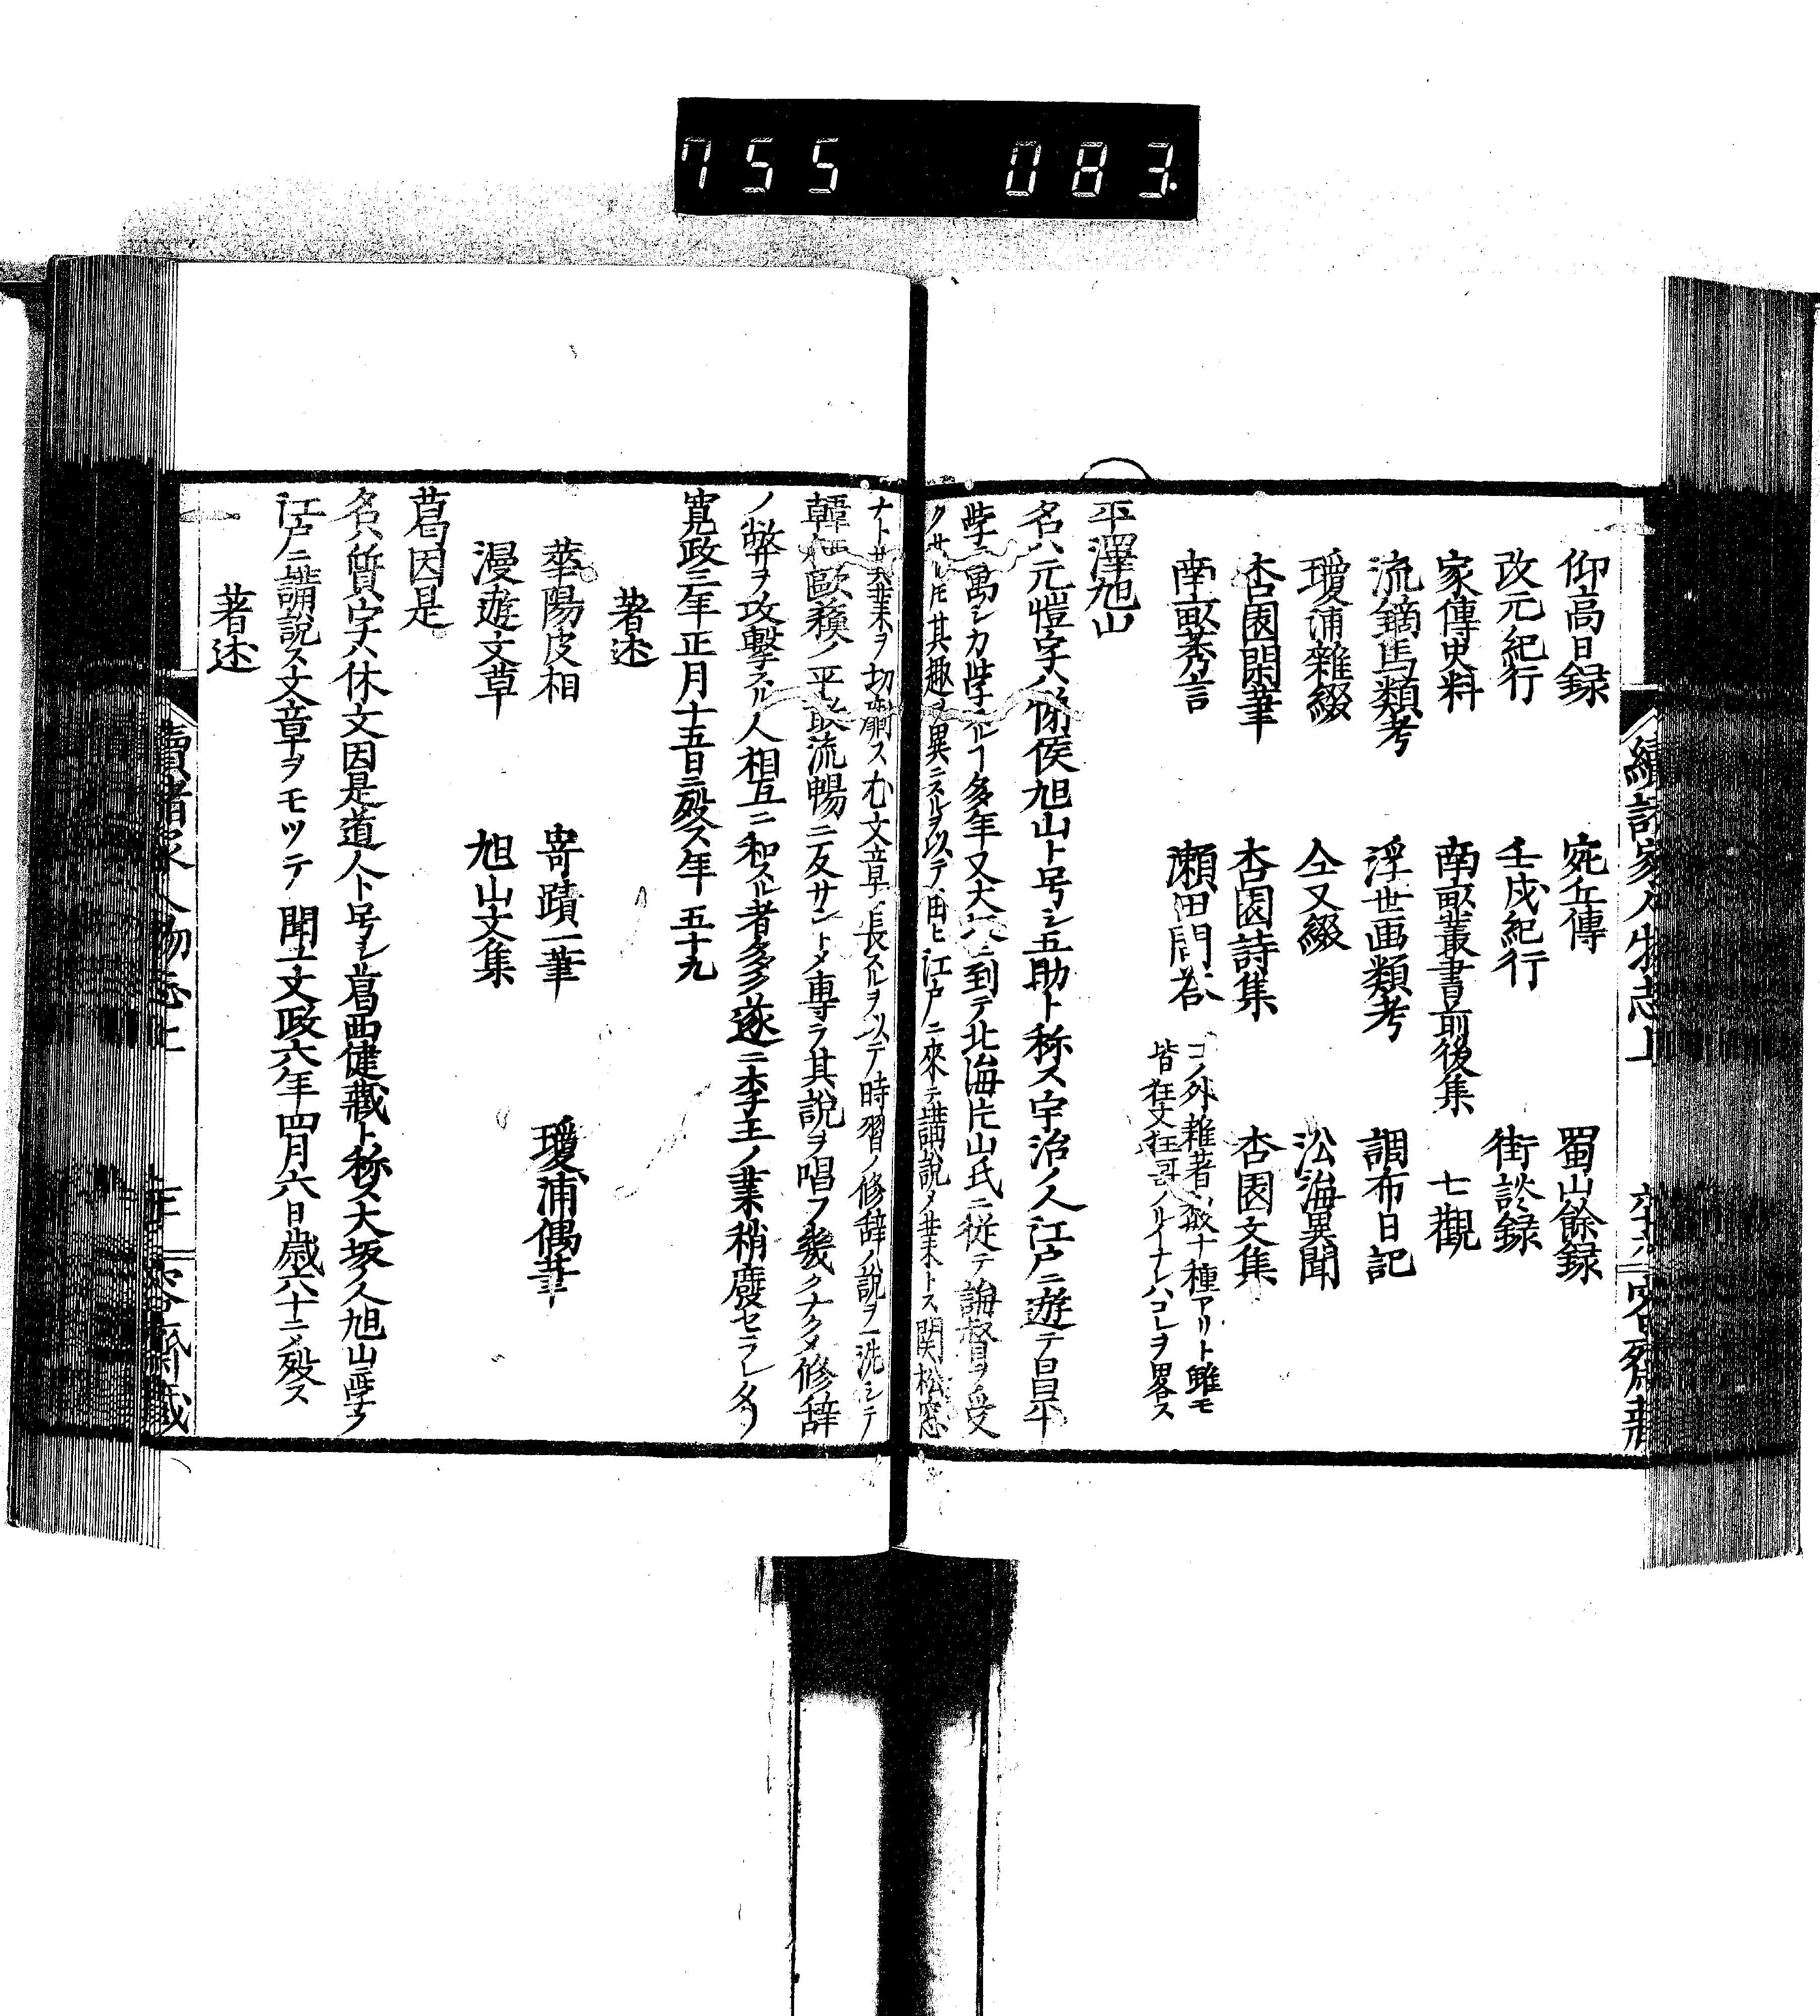 755 083
仰高日録 宛丘傳 蜀山餘録
改元紀行 壬戌紀行 街談録
家傳史料 南畝叢書前後集 七觀
流鏑馬類考 浮世画類考 調布日記
瓊浦雜綴 仝又綴 沿海異聞
杏園閑筆 杏園詩集 杏園文集
南畝莠言 瀬田問荅 コノ外雜著數十種アリト雖モ
皆狂文狂哥ノルイナレハコレヲ畧ス
平澤旭山
名ハ元愷字ハ悌侯旭山ト号シ五助ト称ス宇治ノ人江戸ニ遊テ昌平
學ニ寓シカ學フルヿ多年又大坂ニ到テ北海片山氏ニ従テ誨督ヲ受
クサレ𪜈其趣ヲ異ニスルヲ以テ再ヒ江戸ニ來テ講説ヲ業トス関松窓
ナト共業ヲ切劘ス尤文章ニ長スルヲ以テ時習ノ修辞ノ説ヲ一洗シテ
韓柳歐蘓ノ平淡流暢ニ反サントメ専ラ其説ヲ唱フ幾クナクメ修辞
ノ弊ヲ攻撃スル人相互ニ和スル者多ク遂ニ李王ノ業稍廢セラレタリ
寛政三年正月十五日ニ殁ス年五十九
著述
莘陽皮相 嵜蹟一筆 瓊浦偶筆
漫遊文草 旭山文集
葛因是
名ハ質字ハ休文因是道人ト号シ葛西健藏ト称ス大坂ノ人旭山ニ學フ
江戸ニ講説ス文章ヲモツテ聞ユ文政六年四月六日歳六十ニメ殁ス
著述